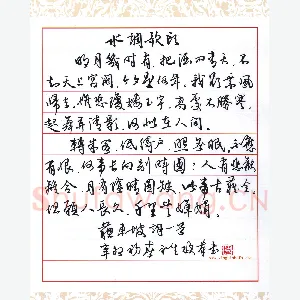 水调歌头
明月几时有,把酒问青天,不
知天上宫阙,今夕是何年。我欲乘风
归去,惟恐琼楼玉宇,高处不胜寒,
起舞弄清影,何似在人间。
转朱阁,低绮户,照无眠,不应
有恨,何事长向别时圆?人有悲欢
离合,月有阴晴圆缺,此事古难全,
但愿人长久,千里共婵娟。
苏东坡词一首